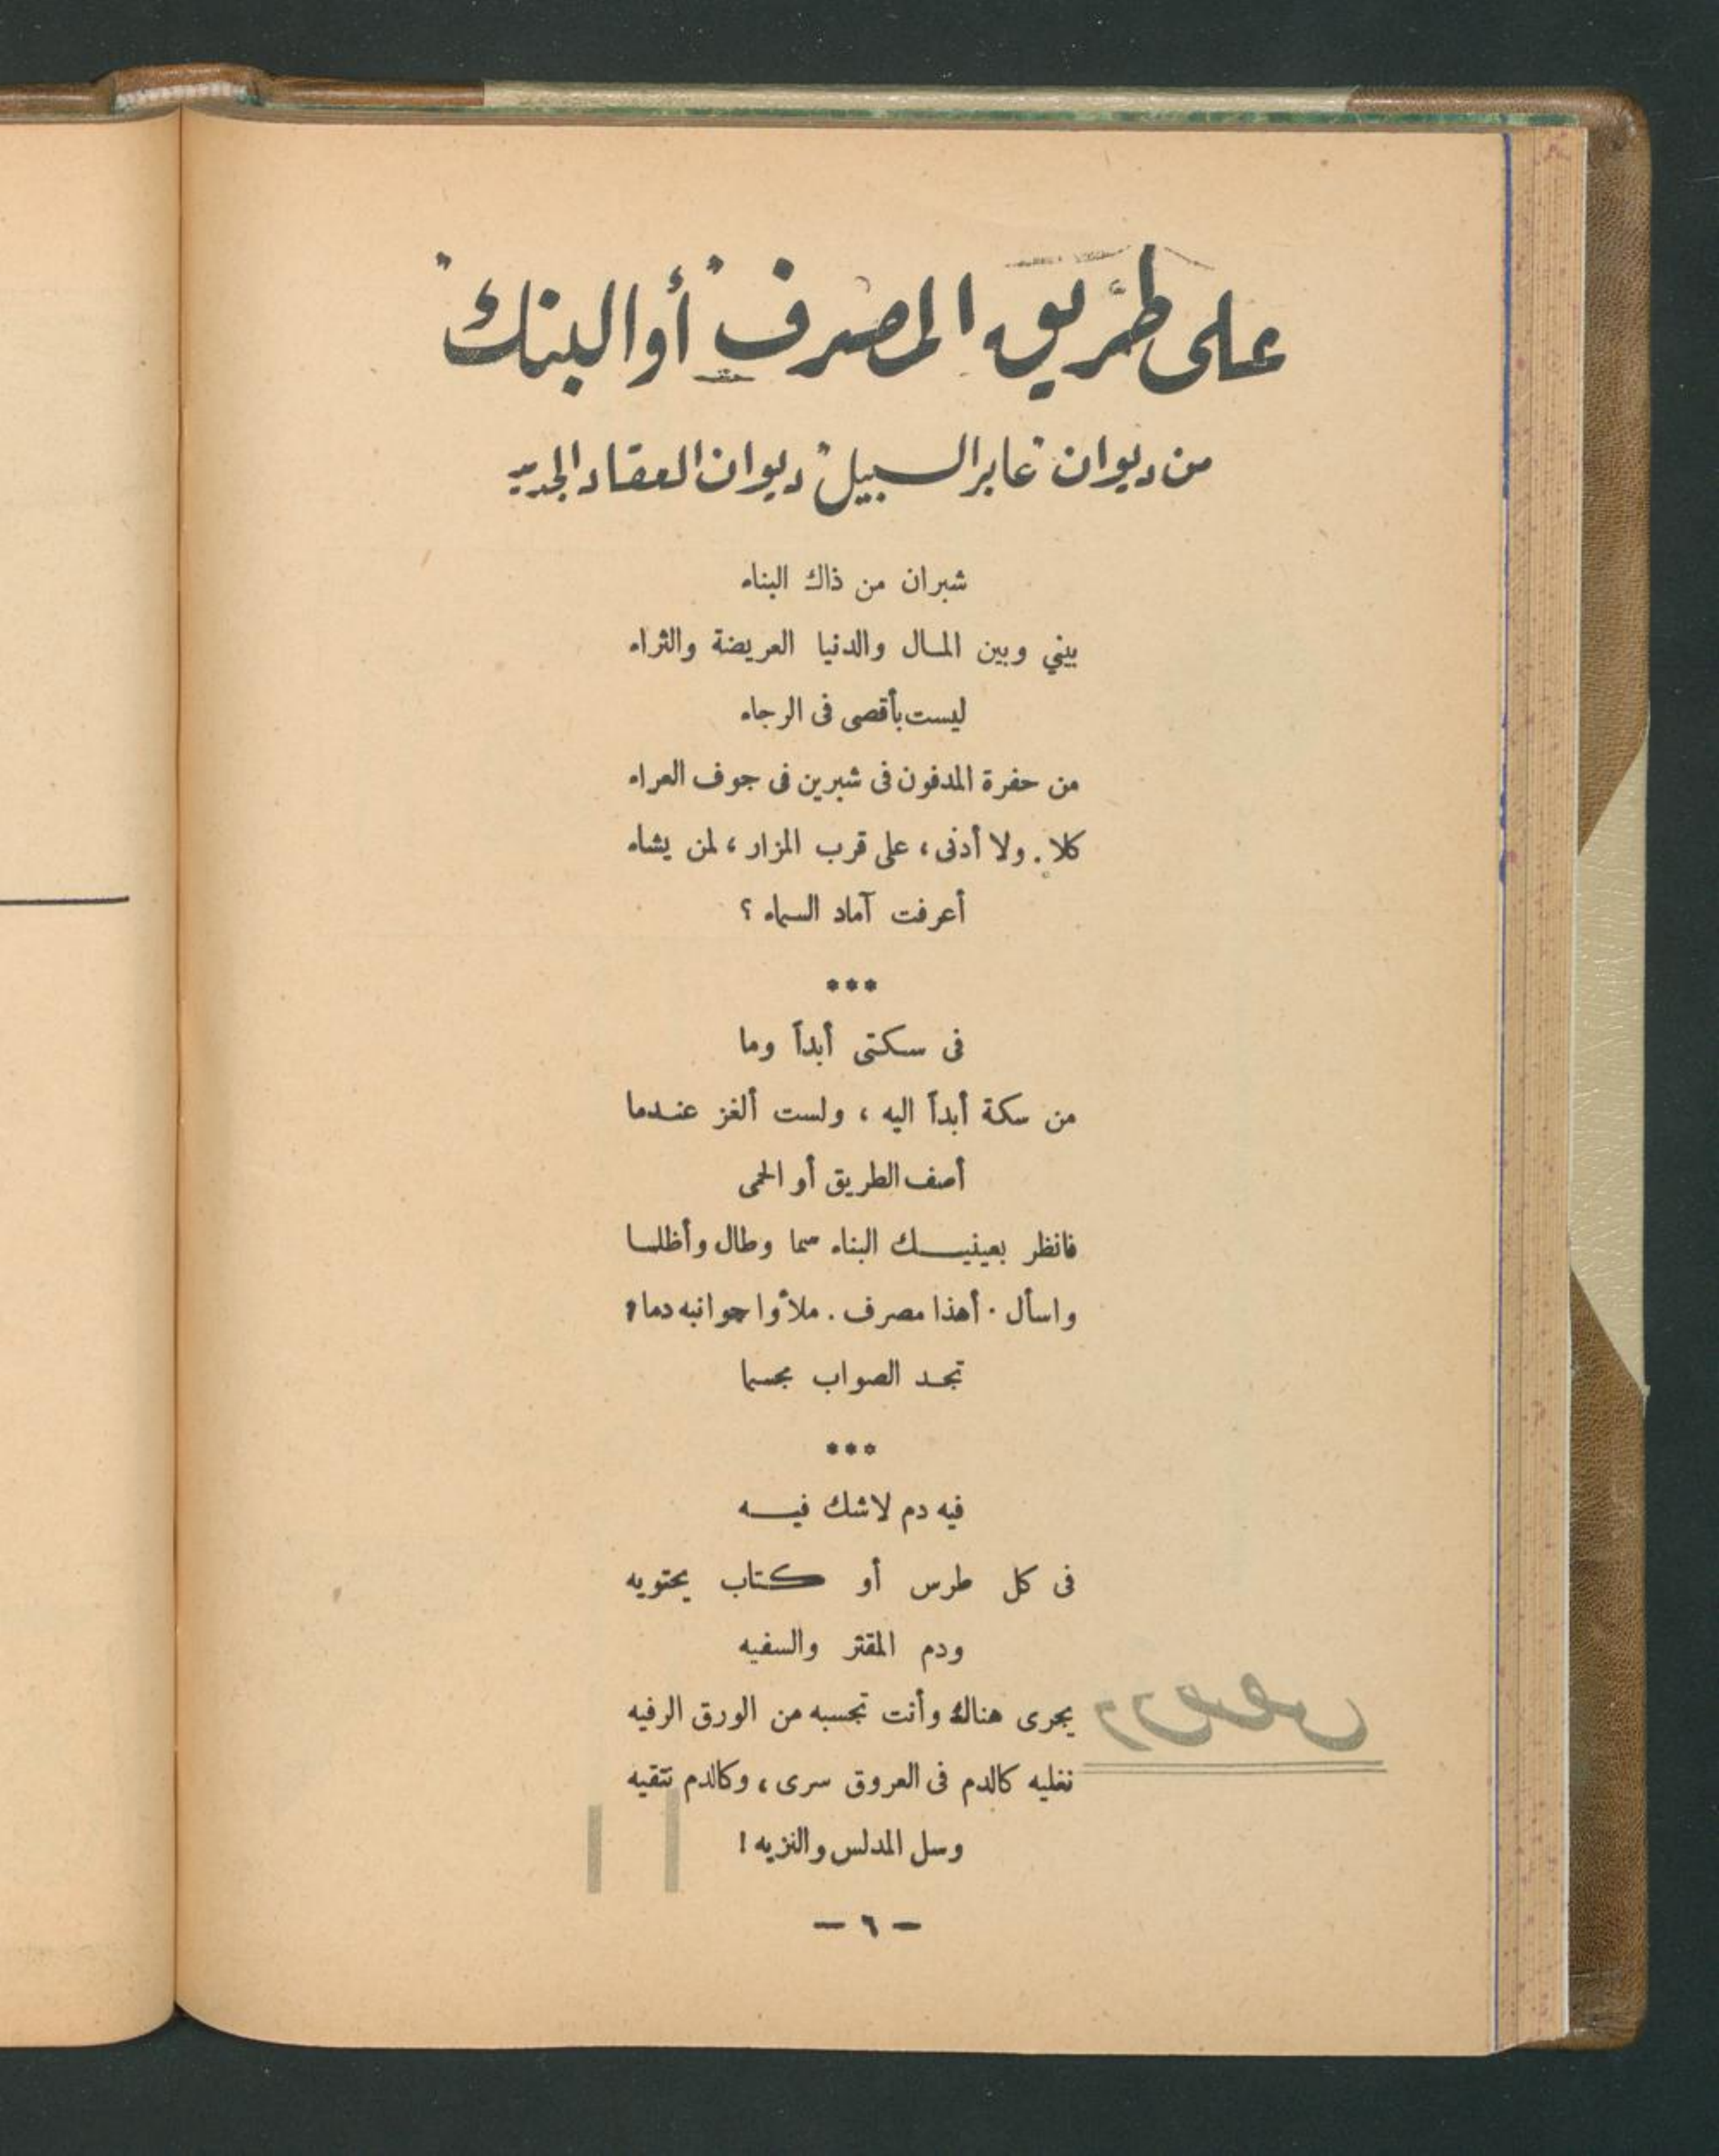 على طريق المصرف "أو البنك"
من ديوان "عابر السبيل" ديوان العقاد الجديد
شبران من ذاك البناء
بيني وبين المال والدنيا العريضة والثراء
ليست بأقصى فى الرجاء
من حفرة المدفون فى شبرين فى جوف العراء
كلا . ولا أدنى ، على قرب المزار ، لمن يشاء
أعرفت آماد السماء ؟
***
فى سكتى أبداً وما
من سكة أبداً اليه ، ولست ألغز عندما
أصف الطريق أو الحمى
فانظر بعينيك البناء سما وطال وأظلما
واسأل . أهذا مصرف . ملأوا جوانبه دما ؟
تجد الصواب مجسما
***
فيه دم لاشك فيه
فى كل طرس أو كتاب يحتويه
ودم المقتر والسفيه
يجرى هناك وأنت تحسبه من الورق الرفيه
نغليه كالدم فى العروق سرى ، وكالدم نتقيه
وسل المدلس والنزيه !
— ٦ —